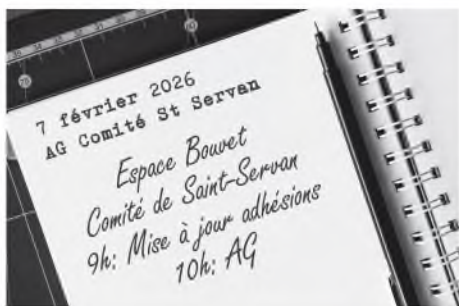 7 février 2026
AG Comité St Servan
Espace Bouvet
Comité de Saint-Servan
9h: Mise à jour adhésions
10h: AG